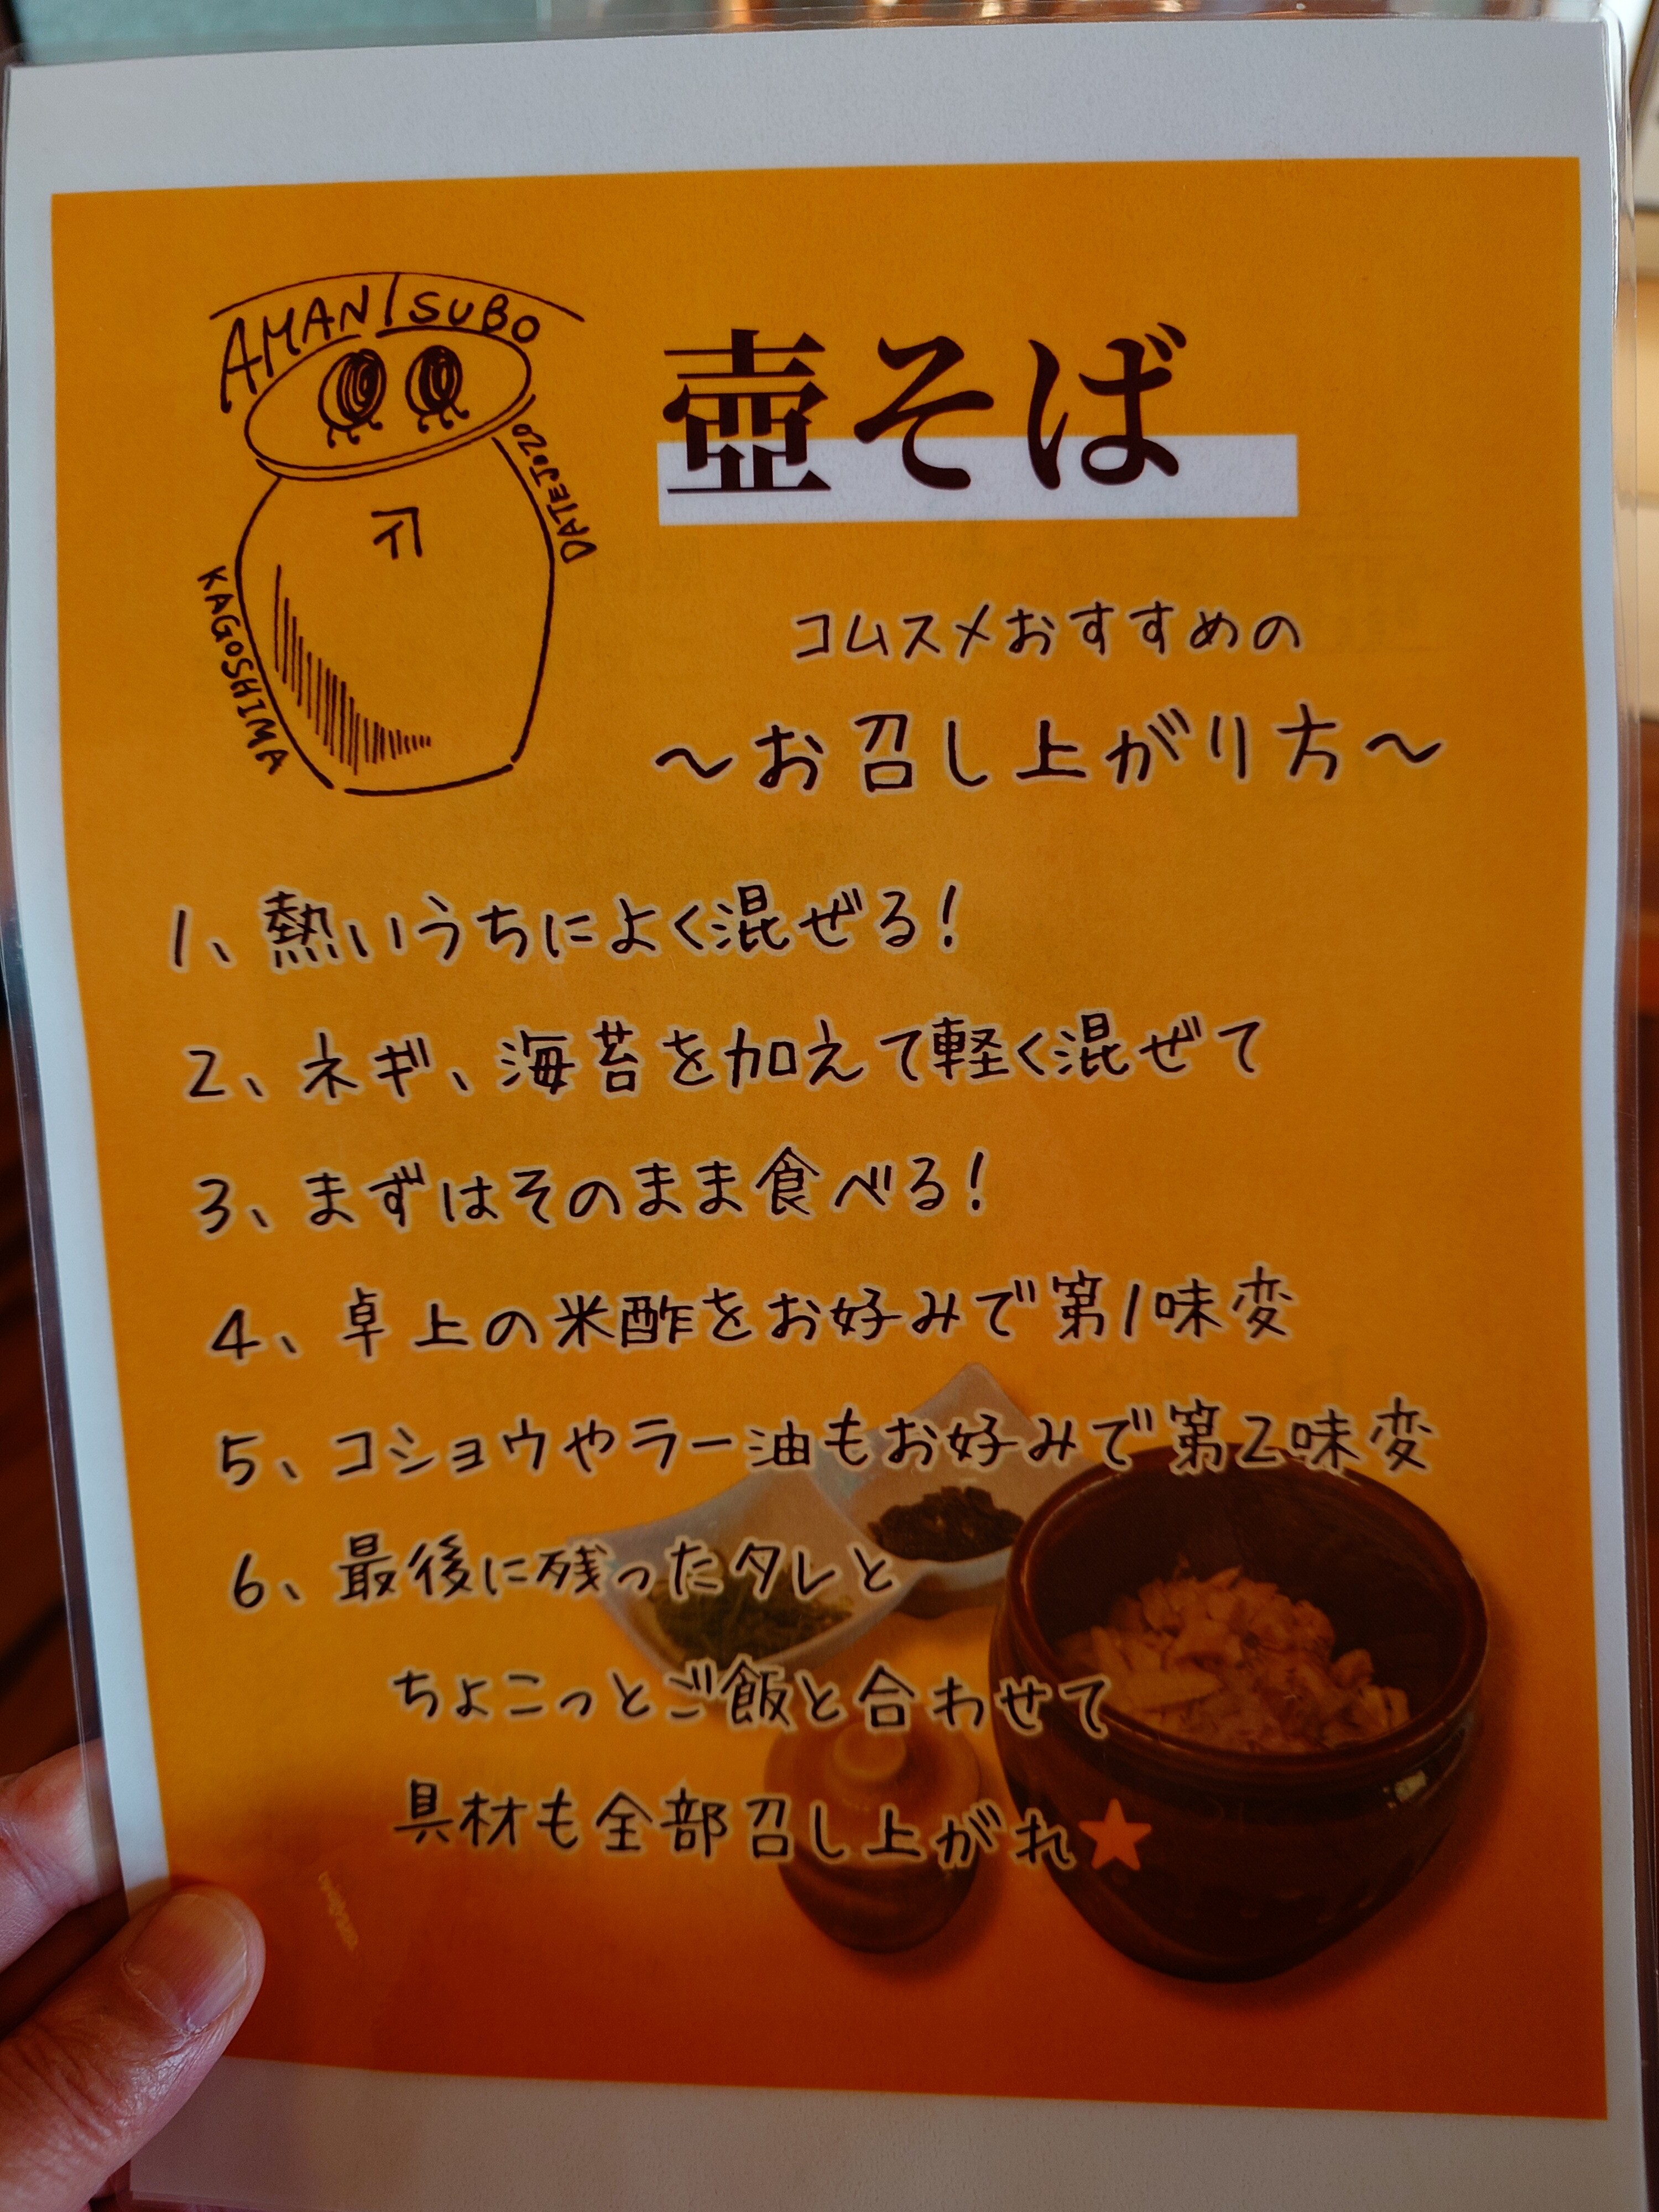 AMANTSUBO
DATEJOZO
KAGOSHIMA
壺そば
コムスメおすすめの
～お召し上がり方～
1、熱いうちによく混ぜる!
2、ネギ、海苔を加えて軽く混ぜて
3、まずはそのまま食べる!
4、卓上の米酢をお好みで第1味変
5、コショウやラー油もお好みで第2味変
6、最後に残ったタレと
ちょこっとご飯と合わせて
具材も全部召し上がれ★